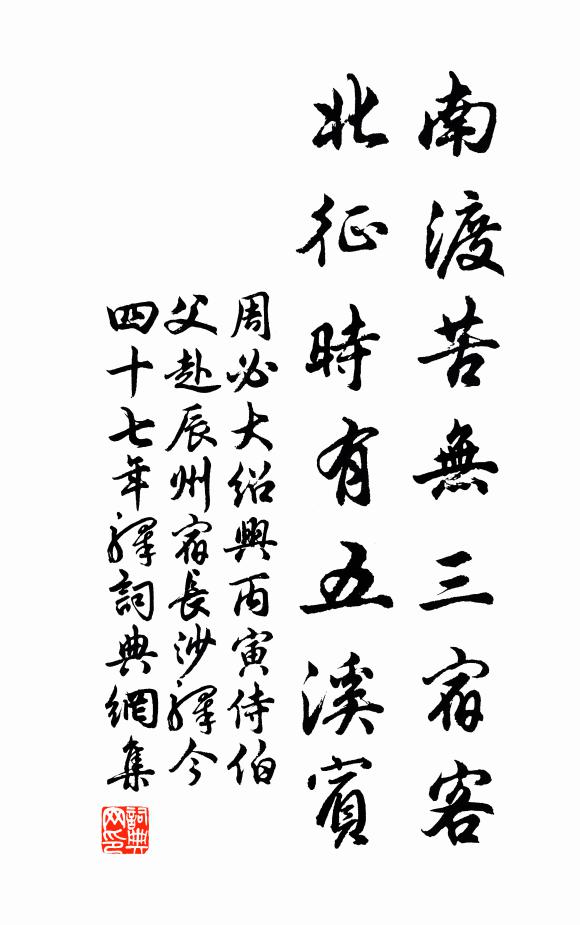 南渡苦無三宿客
北征時有五溪賓
周必大紹興丙寅侍伯
父赴辰州宿長沙驛今
四十七年驛詞典網集
詞典网印